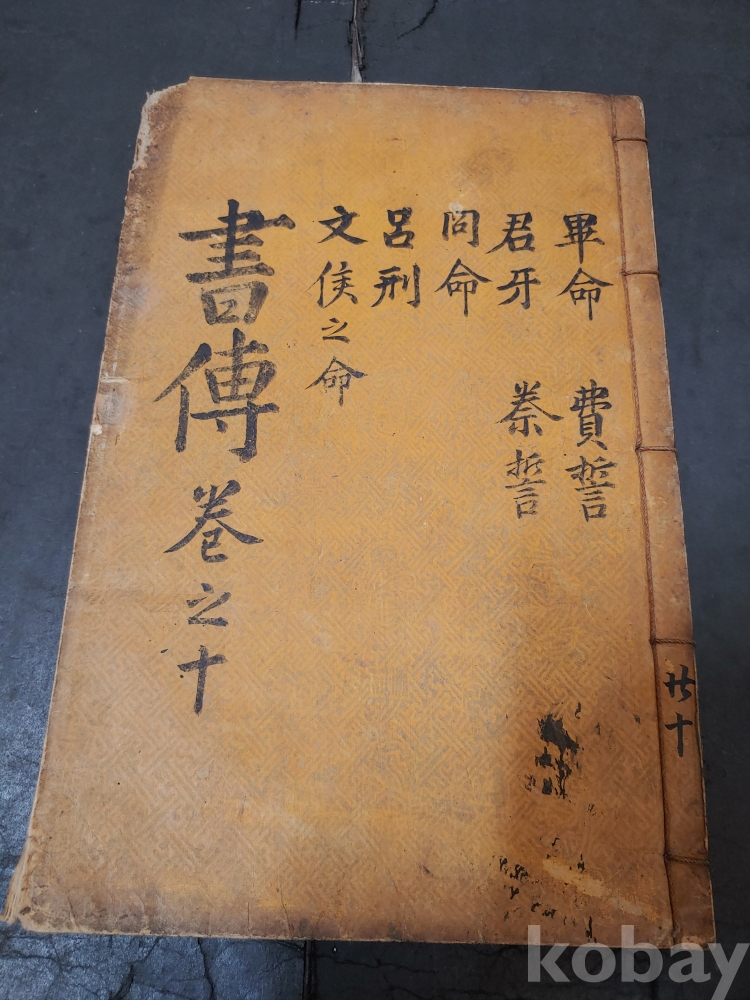 畢命
君牙
冏命
呂刑
文侯之命
費誓
秦誓
書傳卷之十
共十
kobay